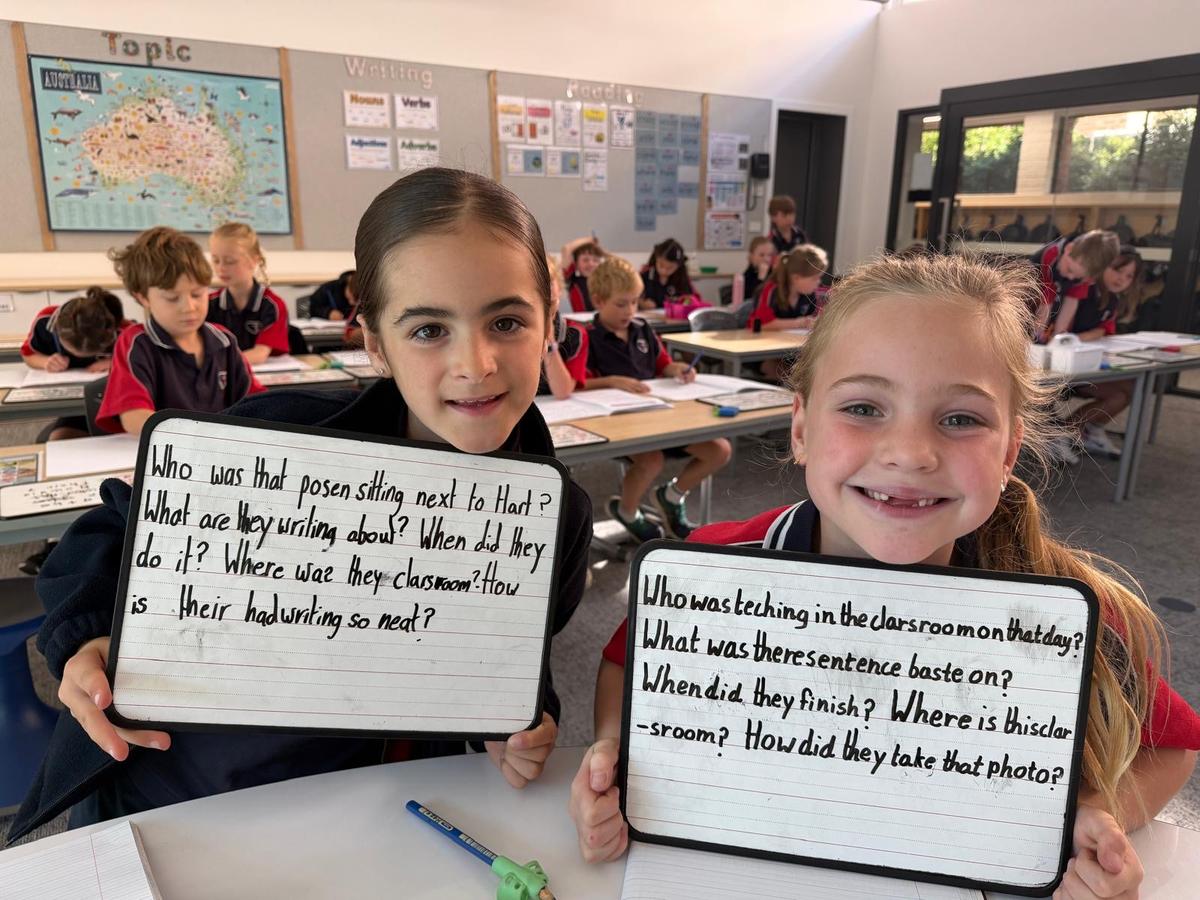 Topic
AUSTRALIA
Writing
Nouns
Verbs
Adjectives
Adverbs
Reading
Who was that posen sitting next to Hart?
What are they writing about? When did they
do it? Where was they clarsroom? How
is their hadwriting so neat?
Who was teching in the clarsroom on that day?
What was there sentence baste on?
When did they finish? Where is this clar
-sroom? How did they take that photo?